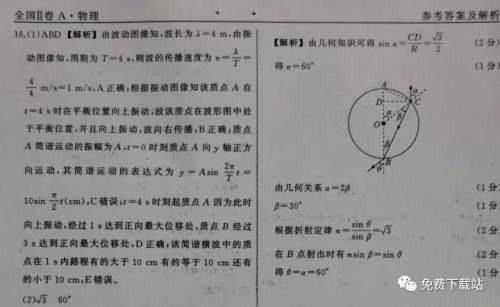 全国Ⅱ卷 A·物理
参考答案及解析
18.(1)ABD 【解析】由波动图像知,波长为 λ=4 m,由振
动图像知,周期为 T=4 s,则波的传播速度为 v=λ/T=
4/4 m/s=1 m/s,A 正确;根据振动图像知该质点 A 在
t=4 s 时在平衡位置向上振动,故该质点在波形图中处
于平衡位置,并且向上振动,波向右传播,B 正确;质点
A 简谐运动的振幅为 A,t=0 时刻质点 A 向 y 轴正方
向运动,其简谐运动的表达式为 y=Asin 2π/T t=
10sin π/2 t(cm),C 错误;t=4 s 时刻起质点 A 因为此时
向上振动,经过 1 s 达到正向最大位移处,质点 B 经过
3 s 达到正向最大位移处,D 正确;该简谐横波中的质
点在 1 s 内路程有的大于 10 cm 有的等于 10 cm 还有
的小于 10 cm,E 错误。
(2)√3 60°
【解析】由几何知识可得 sin α=CD/R=√3/2 (2分)
得 α=60° (1分)
A
D
C
α
O
α
β
β
B
θ
由几何关系 α=2β (1分)
β=30° (1分)
根据折射定律 n=sin θ/sin β=√3 (2分
在 B 点射出时有 nsin β=sin θ (2分
得 θ=α=60° (1分
免费下载站